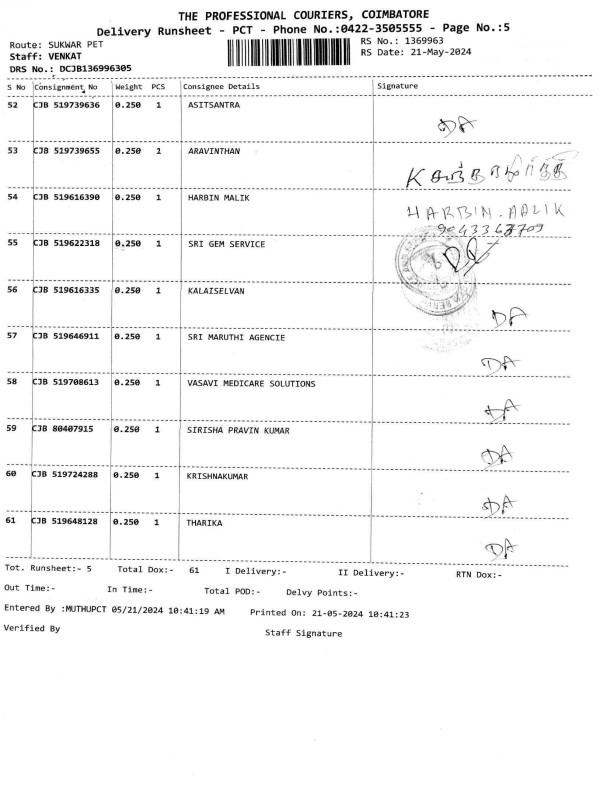 THE PROFESSIONAL COURIERS, COIMBATORE
Delivery Runsheet - PCT - Phone No.:0422-3505555 - Page No.:5
Route: SUKWAR PET RS No.: 1369963
Staff: VENKAT RS Date: 21-May-2024
DRS No.: DCJB136996305
S No Consignment No Weight PCS Consignee Details Signature
52 CJB 519739636 0.250 1 ASITSANTRA
DA
53 CJB 519739655 0.250 1 ARAVINTHAN
K
54 CJB 519616390 0.250 1 HARBIN MALIK
HARBIN. MALIK
9043367709
55 CJB 519622318 0.250 1 SRI GEM SERVICE
56 CJB 519616335 0.250 1 KALAISELVAN
DA
57 CJB 519646911 0.250 1 SRI MARUTHI AGENCIE
DA
58 CJB 519708613 0.250 1 VASAVI MEDICARE SOLUTIONS
DA
59 CJB 80407915 0.250 1 SIRISHA PRAVIN KUMAR
DA
60 CJB 519724288 0.250 1 KRISHNAKUMAR
DA
61 CJB 519648128 0.250 1 THARIKA
DA
Tot. Runsheet:- 5 Total Dox:- 61 I Delivery:- II Delivery:- RTN Dox:-
Out Time:- In Time:- Total POD:- Delvy Points:-
Entered By :MUTHUPCT 05/21/2024 10:41:19 AM Printed On: 21-05-2024 10:41:23
Verified By Staff Signature